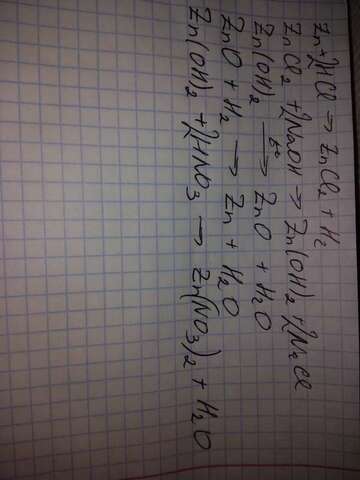 Zn + 2HCl → ZnCl2 + H2
ZnCl2 + 2NaOH → Zn(OH)2 + 2NaCl
Zn(OH)2 t° → ZnO + H2O
ZnO + H2 → Zn + H2O
Zn(OH)2 + 2HNO3 → Zn(NO3)2 + H2O